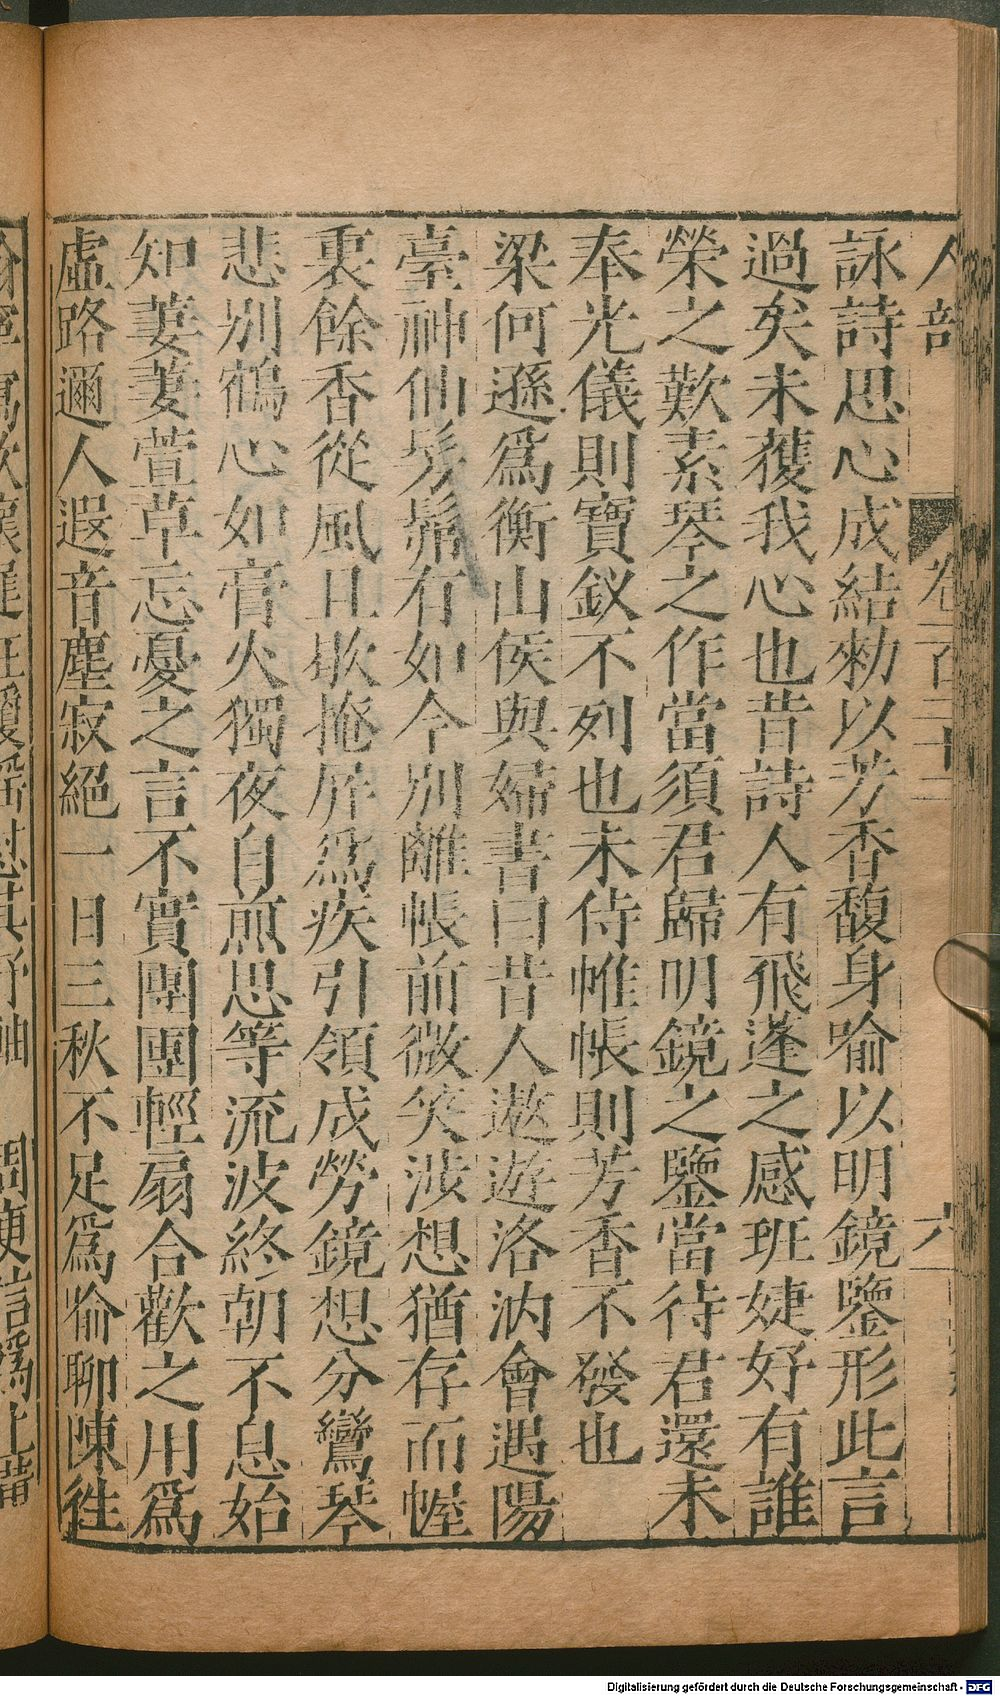 人部 卷一百三十二 六
詠詩思心成結勑以芳香馥身喻以明鏡鑒形此言
過矣未獲我心也昔詩人有飛蓬之感班婕妤有誰
榮之歎素琴之作當須君歸明鏡之鑒當待君還未
奉光儀則寶釵不列也未侍帷帳則芳香不發也
梁何遜爲衡山侯與婦書曰昔人遨遊洛汭會遇陽
臺神仙髣髴有如今別雖帳前微笑涉想猶存而幄
裏餘香從風且歇掩屏爲疾引領成勞鏡想分鸞琴
悲別鶴心如膏火獨夜自煎思等流波終朝不息始
知萋萋萱草忘憂之言不實團團輕扇合歡之用爲
虛路邇人遐音塵寂絕一日三秋不足爲喻聊陳徃
Digitalisierung gefördert durch die Deutsche Forschungsgemeinschaft - DFG